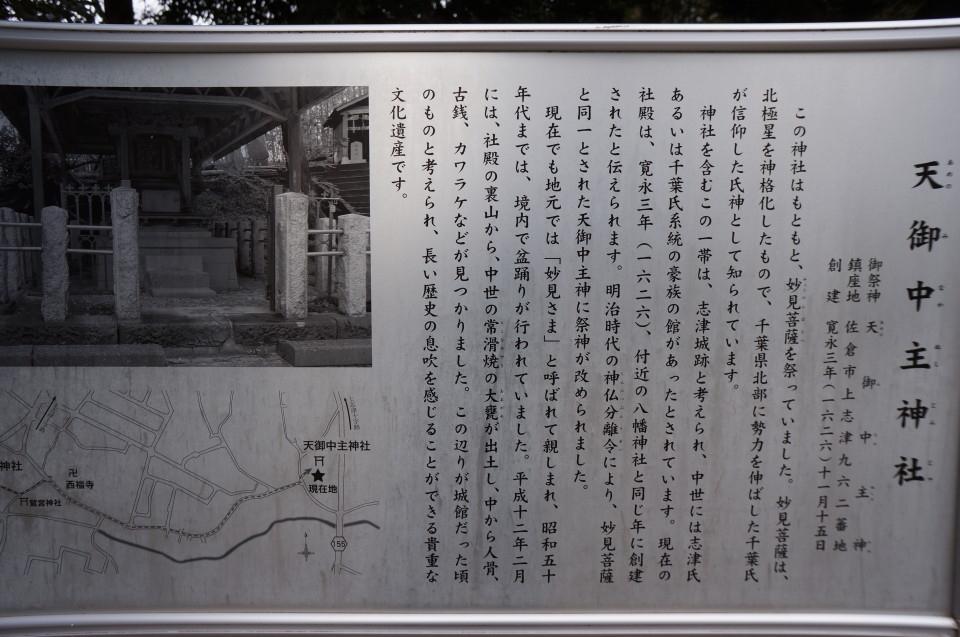 天御中主神社
あめの み なか ぬし じん じゃ
御祭神 天御中主神
鎮座地 佐倉市上志津九六二番地
創建 寛永三年(一六二六)十一月十五日
この神社はもともと、妙見菩薩を祭っていました。妙見菩薩は、
北極星を神格化したもので、千葉県北部に勢力を伸ばした千葉氏
が信仰した氏神として知られています。
神社を含むこの一帯は、志津城跡と考えられ、中世には志津氏
あるいは千葉氏系統の豪族の館があったとされています。現在の
社殿は、寛永三年(一六二六)、付近の八幡神社と同じ年に創建
されたと伝えられます。明治時代の神仏分離令により、妙見菩薩
と同一とされた天御中主神に祭神が改められました。
現在でも地元では「妙見さま」と呼ばれて親しまれ、昭和五十
年代までは、境内で盆踊りが行われていました。平成十二年二月
には、社殿の裏山から、中世の常滑焼の大甕が出土し、中から人骨、
古銭、カワラケなどが見つかりました。この辺りが城館だった頃
のものと考えられ、長い歴史の息吹を感じることができる貴重な
文化遺産です。
天御中主神社
現在地
西福寺
鷲宮神社
神社
55